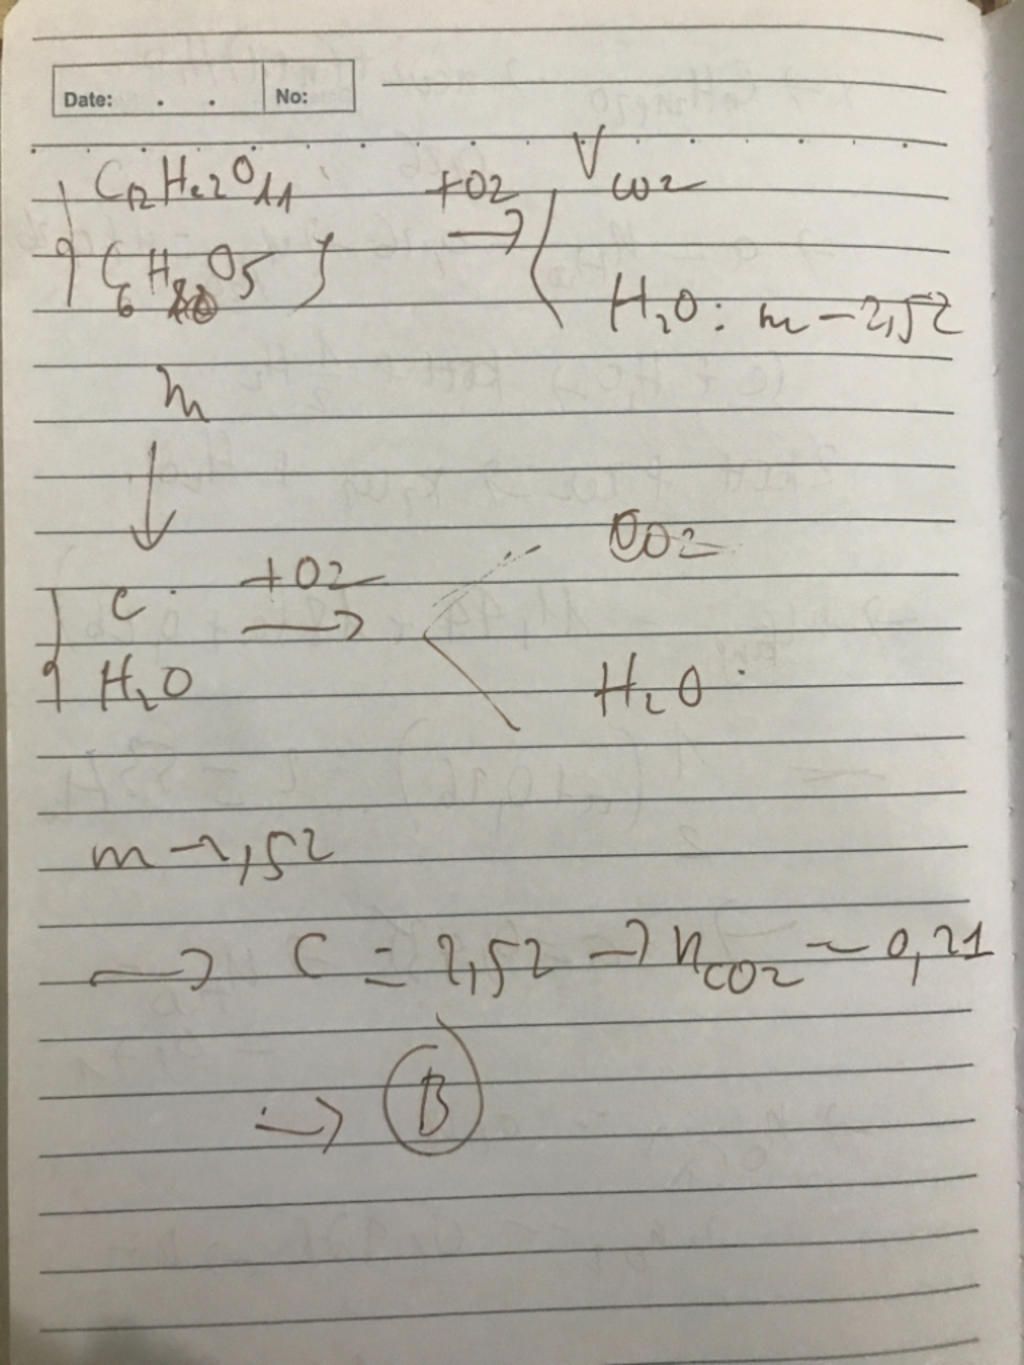 Date: . . No:
C12H22O11 +O2 → V CO2
C6H10O5 H2O: m - 2,52
m
↓
C +O2 → CO2
H2O H2O
m - 2,52
→ C = 2,52 → nCO2 = 0,21
→ B